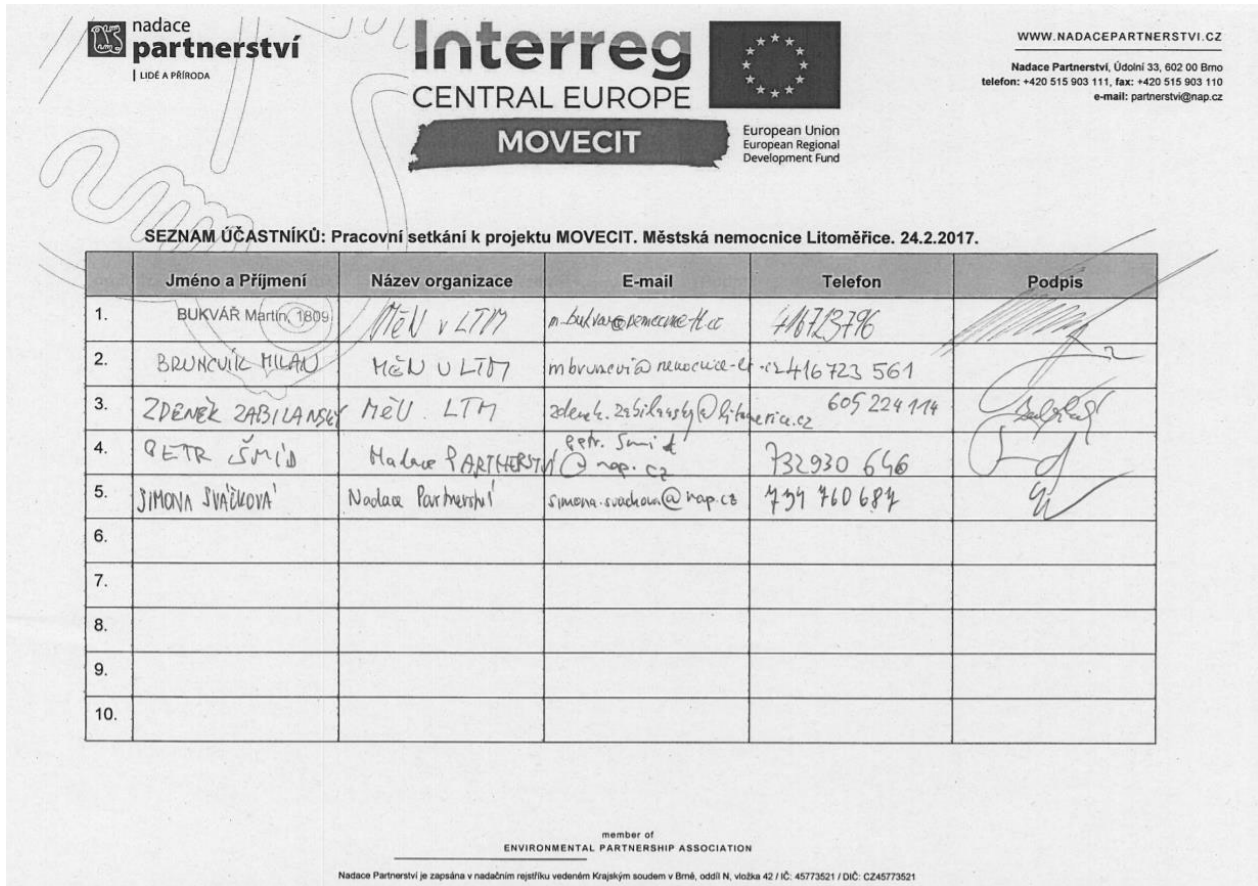 nadace
partnerství
LIDÉ A PŘÍRODA
Interreg
CENTRAL EUROPE
MOVECIT
European Union
European Regional
Development Fund
WWW.NADACEPARTNERSTVI.CZ
Nadace Partnerství, Údolní 33, 602 00 Brno
telefon: +420 515 903 111, fax: +420 515 903 110
e-mail: partnerstvi@nap.cz
SEZNAM ÚČASTNÍKŮ: Pracovní setkání k projektu MOVECIT. Městská nemocnice Litoměřice. 24.2.2017.
Jméno a Příjmení Název organizace E-mail Telefon Podpis
1. BUKVÁŘ Martin, 1809 MěN v LTM 416723796
2. BRUNCVÍK MILAN MĚN V LTM 416723 561
3. ZDENĚK ZABILANSKÝ MěÚ. LTM zdenek.zabilansky@litomerice.cz 605 224 114
4. PETR ŠMÍD Nadace PARTNERSTVÍ petr.smid@nap.cz 732930 646
5. SIMONA SVAČKOVÁ Nadace Partnerství simona.svackova@nap.cz 734 760 687
6.
7.
8.
9.
10.
member of
ENVIRONMENTAL PARTNERSHIP ASSOCIATION
Nadace Partnerství je zapsána v nadačním rejstříku vedeném Krajským soudem v Brně, oddíl N, vložka 42 / IČ: 45773521 / DIČ: CZ45773521